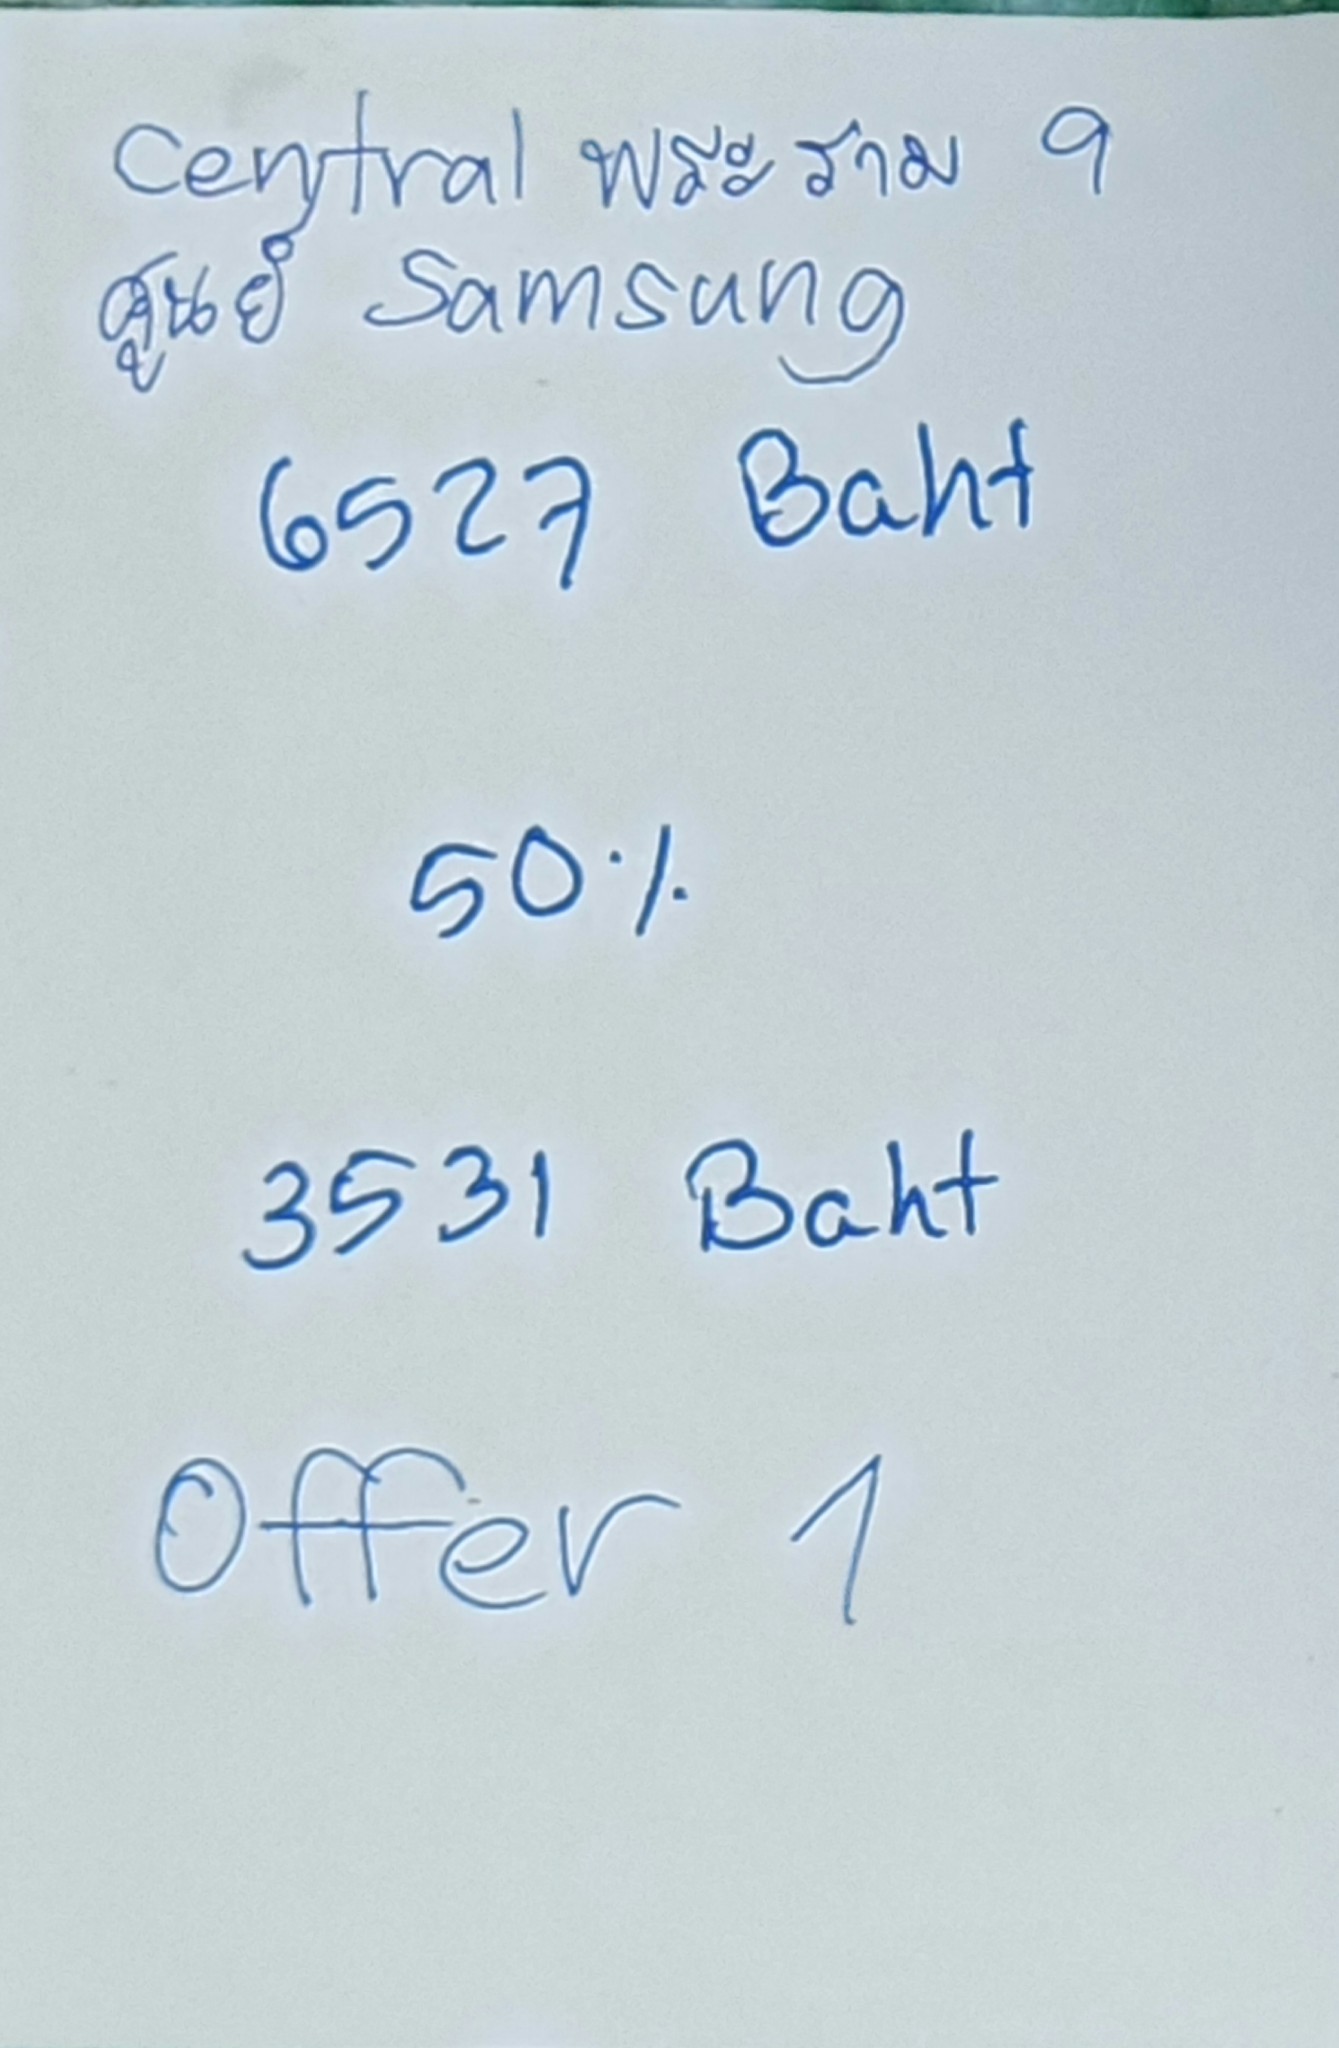 Central พระราม 9
ศูนย์ Samsung
6527 Baht
50%
3531 Baht
Offer 1